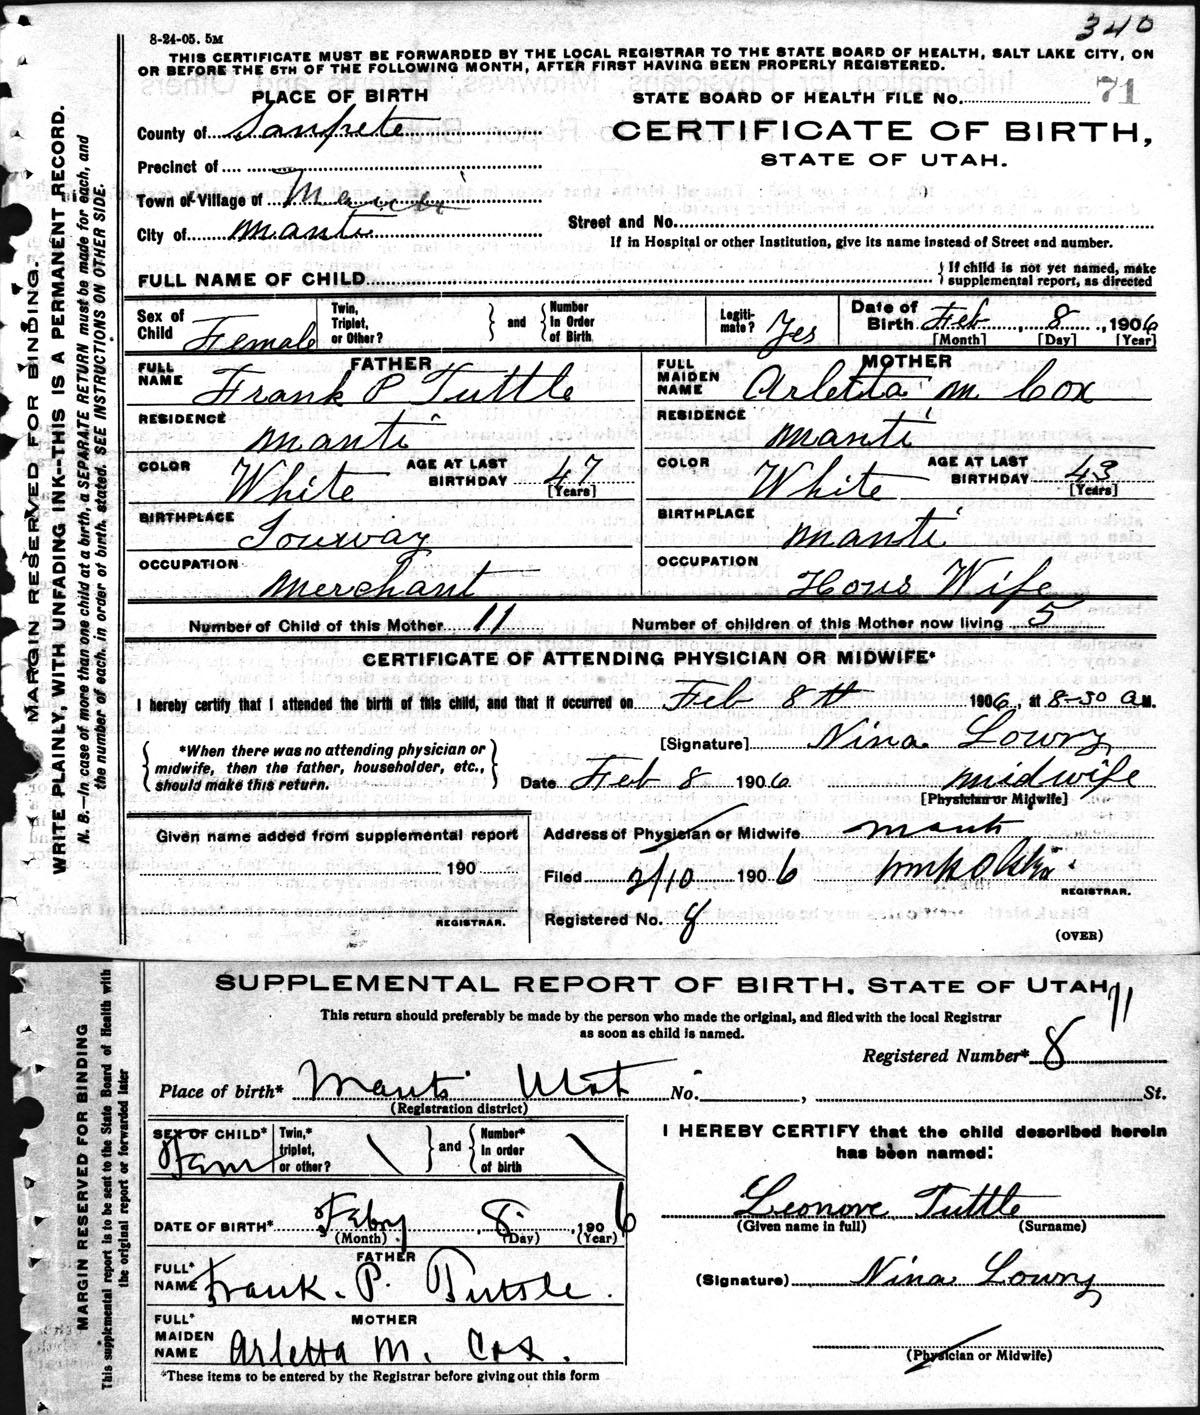 340
8-24-05. 5M
THIS CERTIFICATE MUST BE FORWARDED BY THE LOCAL REGISTRAR TO THE STATE BOARD OF HEALTH, SALT LAKE CITY, ON
OR BEFORE THE 5TH OF THE FOLLOWING MONTH, AFTER FIRST HAVING BEEN PROPERLY REGISTERED.
MARGIN RESERVED FOR BINDING.
WRITE PLAINLY, WITH UNFADING INK--THIS IS A PERMANENT RECORD.
N. B.--In case of more than one child at a birth, a SEPARATE RETURN must be made for each, and
the number of each, in order of birth, stated. SEE INSTRUCTIONS ON OTHER SIDE.
PLACE OF BIRTH
STATE BOARD OF HEALTH FILE No. 71
County of Sanpete
CERTIFICATE OF BIRTH,
STATE OF UTAH.
Precinct of
Town or Village of Manti
Street and No.
City of Manti
If in Hospital or other Institution, give its name instead of Street and number.
FULL NAME OF CHILD
If child is not yet named, make
supplemental report, as directed
Sex of Child Female
Twin, Triplet, or Other?
and
Number In Order of Birth
Legiti-mate? Yes
Date of Birth Feb, 8, 1906
[Month] [Day] [Year]
FATHER
FULL NAME Frank P Tuttle
MOTHER
FULL MAIDEN NAME Arletta M Cox
RESIDENCE Manti
RESIDENCE Manti
COLOR White AGE AT LAST BIRTHDAY 47 [Years]
COLOR White AGE AT LAST BIRTHDAY 43 [Years]
BIRTHPLACE
BIRTHPLACE Manti
OCCUPATION Merchant
OCCUPATION Hous Wife
Number of Child of this Mother 11
Number of children of this Mother now living 5
CERTIFICATE OF ATTENDING PHYSICIAN OR MIDWIFE*
I hereby certify that I attended the birth of this child, and that it occurred on Feb 8th 1906, at 8-30 a M.
*When there was no attending physician or
midwife, then the father, householder, etc.,
should make this return.
[Signature] Nina Lowry
Date Feb 8 1906 midwife
[Physician or Midwife]
Given name added from supplemental report
190
REGISTRAR.
Address of Physician or Midwife Manti
Filed 2/10 1906
REGISTRAR.
Registered No. 8
(OVER)
MARGIN RESERVED FOR BINDING
This supplemental report is to be sent to the State Board of Health with
the original report or forwarded later
SUPPLEMENTAL REPORT OF BIRTH, STATE OF UTAH
71
This return should preferably be made by the person who made the original, and filed with the local Registrar
as soon as child is named.
Registered Number* 8
Place of birth* Manti Utah No. , St.
(Registration district)
SEX OF CHILD* Fem
Twin,* triplet, or other?
and
Number* In order of birth
DATE OF BIRTH* Feby, 8, 1906
(Month) (Day) (Year)
FATHER
FULL* NAME Frank. P. Tuttle.
MOTHER
FULL* MAIDEN NAME Arletta M. Cox.
*These items to be entered by the Registrar before giving out this form
I HEREBY CERTIFY that the child described herein
has been named:
Leonore Tuttle
(Given name in full) (Surname)
(Signature) Nina Lowry
(Physician or Midwife)